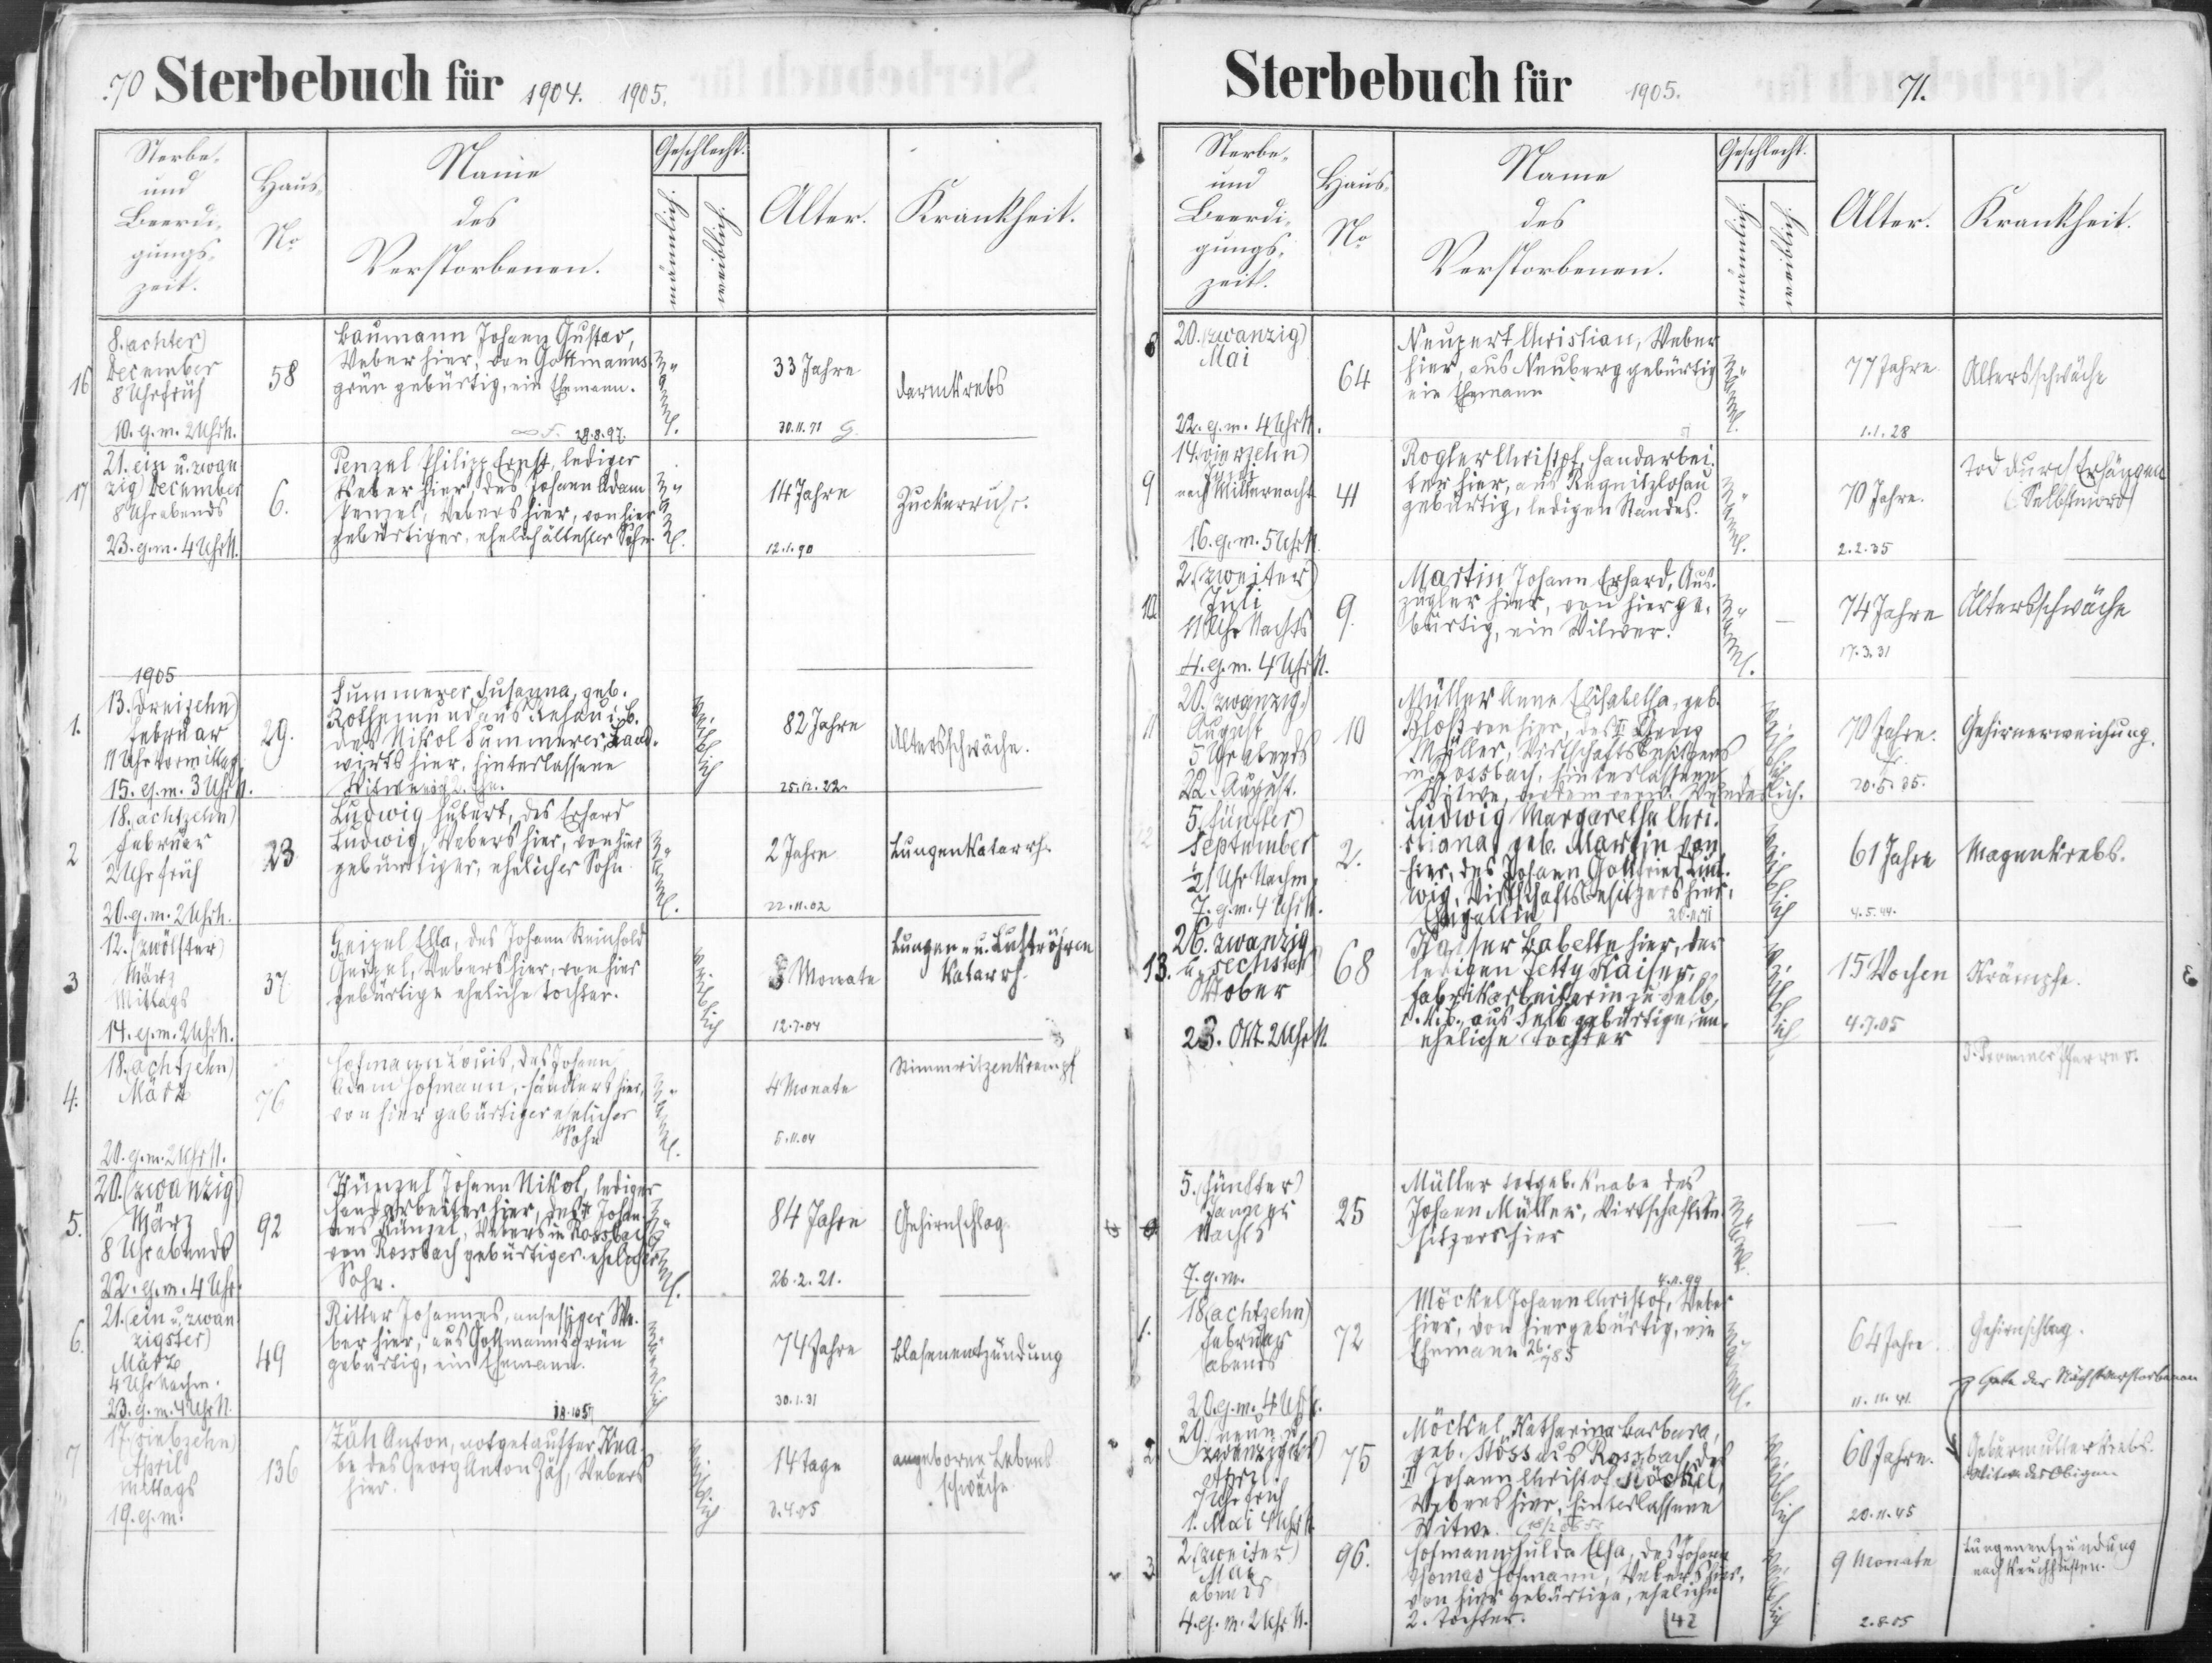 70 Sterbebuch für 1904. 1905.
Sterbe-
und
Beerdi-
gungs-
zeit.
Haus-
No
Name
des
Verstorbenen.
Geschlecht.
männlich.
weiblich.
Alter.
Krankheit.
16
8. (achter)
December
8 Uhr früh
10. g. m. 2 Uhr N.
58
Baumann Johann Gustav,
Weber hier, von Gottmanns-
grün gebürtig, ein Ehemann.
28.8.97.
männl.
33 Jahre
30.11.71
Darmkrebs
17
21. (ein u. zwan-
zig) December
8 Uhr abends
23. g. m. 4 Uhr N.
6.
Penzel Philipp Ernst, lediger
Weber hier, des Johann Adam
Penzel, Webers hier, von hier
gebürtiger, ehelich ältester Sohn.
männl.
14 Jahre
12.1.90
Zuckerruhr.
1905
1.
13. (dreizehn)
Februar
11 Uhr vormittag
15. g. m. 3 Uhr N.
29.
Summerer Susanna, geb.
Rothemund aus Rehau i. B.
des Nikol Summerer, Land-
wirts hier, hinterlassene
Witwe
weiblich
82 Jahre
25.12.22.
Altersschwäche.
2
18. (achtzehn)
Februar
2 Uhr früh
20. g. m. 2 Uhr N.
23
Ludwig Hubert, des Erhard
Ludwig, Webers hier, von hier
gebürtiger, ehelicher Sohn
männl.
2 Jahre
22.11.02
Lungenkatarrh.
3
12. (zwölfter)
März
Mittags
14. g. m. 2 Uhr N.
37
Geipel Ella, des Johann Reinhold
Geipel, Webers hier, von hier
gebürtige eheliche Tochter.
weiblich
8 Monate
12.7.04
Lungen- u. Luftröhren
Katarrh.
4.
18. (achtzehn)
März
20. g. m. 2 Uhr N.
76
Hofmann Louis, des Johann
Adam Hofmann, Händlers hier,
von hier gebürtiger ehelicher
Sohn
männl.
4 Monate
5.11.04
Stimmritzenkrampf
5.
20. (zwanzig)
März
8 Uhr abends
22. g. m. 4 Uhr.
92
Künzel Johann Nikol, lediger
Handarbeiter hier, des † Johan-
nes Künzel, Webers in Rossbach
von Rossbach gebürtiger ehelicher
Sohn.
männl.
84 Jahre
26.2.21.
Gehirnschlag.
6.
21. (ein u. zwan-
zigster)
März
4 Uhr Nachm.
23. g. m. 4 Uhr N.
49
Ritter Johannes, ansässiger We-
ber hier, aus Gottmannsgrün
gebürtig, ein Ehemann.
männlich
74 Jahre
30.1.31
Blasenentzündung
7
17. (siebzehn)
April
mittags
19. g. m.
136
Zäh Anton, notgetaufter Kna-
be des Georg Anton Zäh, Webers
hier.
weiblich
14 Tage
3.4.05
angeborne Lebens
schwäche
Sterbebuch für 1905. 71.
Sterbe-
und
Beerdi-
gungs-
zeit.
Haus-
No
Name
des
Verstorbenen.
Geschlecht.
männlich.
weiblich.
Alter.
Krankheit.
8
20. (zwanzig)
Mai
22. g. m. 4 Uhr N.
64
Neupert Christian, Weber
hier, aus Neuberg gebürtig
ein Ehemann
männl.
77 Jahre
1.1.28
Altersschwäche
9
14. (vierzehn)
Juni
nach Mitternacht
16. g. m. 5 Uhr N.
41
Rogler Christof, Handarbei-
ter hier, aus Regnitzlosau
gebürtig, ledigen Standes.
männl.
70 Jahre.
2.2.35
Tod durch Erhängen
(Selbstmord)
10
2. (zweiter)
Juli
11 Uhr Nachts
4. g. m. 4 Uhr N.
9.
Martin Johann Erhard, Aus-
zügler hier, von hier ge-
bürtig, ein Witwer.
männl.
74 Jahre
17.3.31
Altersschwäche
11
20. (zwanzig)
August
5 Uhr abends
22. August.
10
Müller Anna Elisabetha, geb.
Ploß von hier, des
Müller, Wirtschaftsbesitzers
in Rossbach, hinterlassene
Witwe,
weiblich.
70 Jahre.
20.5.35.
Gehirnerweichung.
12
5. (fünfter)
September
Uhr Nachm.
7. g. m. 4 Uhr N.
2.
Ludwig Margaretha Chri-
stiana, geb. Martin von
hier, des Johann Gottfried Lud-
wig, Wirtschaftsbesitzers hier,
Ehegattin
weiblich
61 Jahre
4.5.44.
Magenkrebs.
13.
26. zwanzig
u. sechster
Oktober
28. Okt. 2 Uhr N.
68
Kaiser Babette hier, der
ledigen Jetty Kaiser,
Fabrikarbeiterin zu Selb,
aus Selb gebürtige, un-
eheliche Tochter
weiblich
15 Wochen
4.7.05
Krämpfe.
Pfarrer.
5. (fünfter)
Januar
Nachts
7. g. m.
25
Müller totgeb. Knabe des
Johann Müller, Wirtschaftsbe-
sitzers hier
männl.
1.
18. (achtzehn)
Februar
abends
20. g. m. 4 Uhr N.
72
Möckel Johann Christof, Weber
hier, von hier gebürtig, ein
Ehemann
männl.
64 Jahre.
11.11.41.
Gehirnschlag.
Gatte der Nächstverstorbenen
2.
29. (neun u.
zwanzigster)
April.
7 Uhr früh
1. Mai 4 Uhr N.
75
Möckel Katharina Barbara,
geb. Stöss aus Rossbach, des
† Johann Christof Möckel,
Webers hier, hinterlassene
Witwe.
weiblich
60 Jahre.
20.11.45
Gebärmutterkrebs.
Witwe des Obigen
3
2. (zweiter)
Mai
abends
4. g. m. 2 Uhr N.
96.
Hofmann Hulda Elsa, des Johann
Thomas Hofmann, Webers hier,
von hier gebürtige, eheliche
2. Tochter.
42
weiblich
9 Monate
2.8.05
Lungenentzündung
nach Keuchhusten.